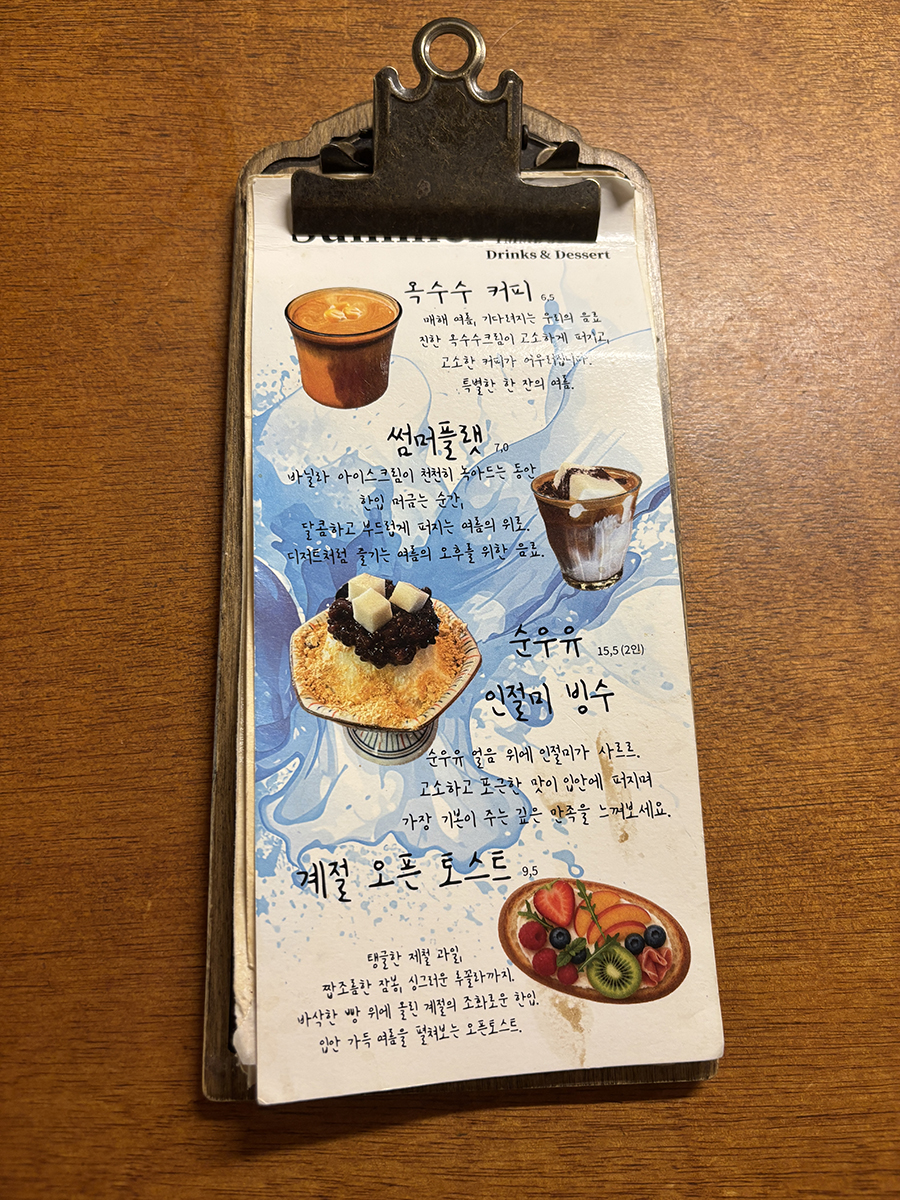 Drinks & Dessert
옥수수 커피 6,5
매해 여름, 기다려지는 우리의 음료
진한 옥수수크림이 고소하게 퍼지고,
고소한 커피가 어우러집니다.
특별한 한 잔의 여름.
썸머플랫 7,0
바닐라 아이스크림이 천천히 녹아드는 동안
한입 머금는 순간,
달콤하고 부드럽게 퍼지는 여름의 위로.
디저트처럼 즐기는 여름의 오후를 위한 음료.
순우유 15,5 (2인)
인절미 빙수
순우유 얼음 위에 인절미가 사르르.
고소하고 포근한 맛이 입안에 퍼지며
가장 기본이 주는 깊은 만족을 느껴보세요.
계절 오픈 토스트 9,5
탱글한 제철 과일,
짭조롬한 잠봉, 싱그러운 루꼴라까지.
바삭한 빵 위에 올린 계절의 조화로운 한입.
입안 가득 여름을 펼쳐보는 오픈토스트.